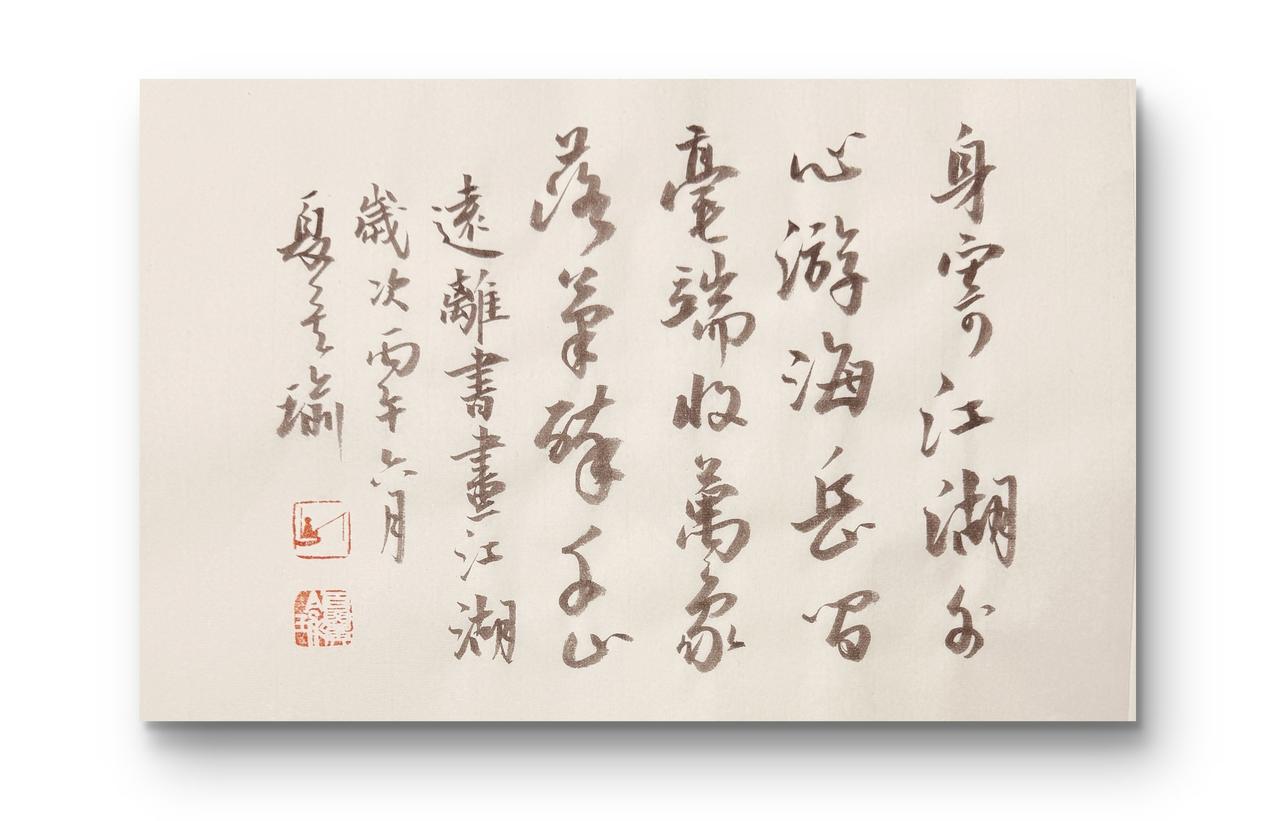 身寄江湖外
心游海岳間
毫端收萬象
落筆醉千山
遠離書畫江湖
歲次丙午六月
夏瑜